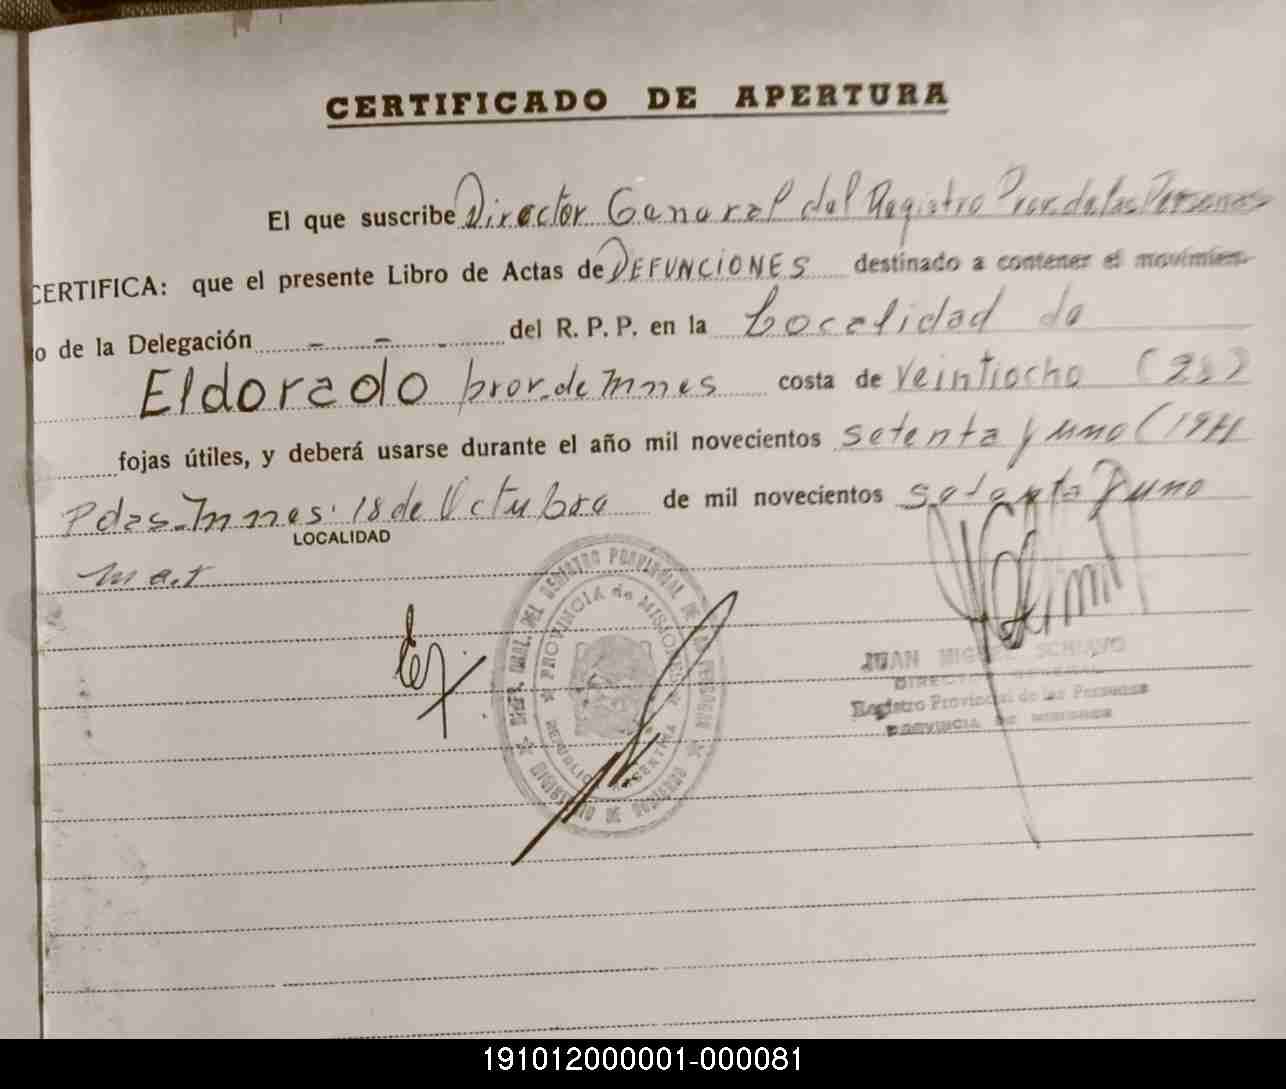 CERTIFICADO DE APERTURA
El que suscribe Director General del Registro Prov. de las Personas
CERTIFICA: que el presente Libro de Actas de DEFUNCIONES destinado a contener el movimien-
o de la Delegación - - - del R. P. P. en la Localidad de
Eldorado prov. de Mnes costa de veintiocho (28)
fojas útiles, y deberá usarse durante el año mil novecientos setenta y uno (1971
Pdas. Mnes. 18 de Octubre de mil novecientos setenta y uno
LOCALIDAD
DIREC. GRAL. DEL REGISTRO PROVINCIAL DE LAS PERSONAS
PROVINCIA de MISIONES
REPUBLICA ARGENTINA
MINISTERIO DE GOBIERNO
JUAN MIGUEL SCHIAVO
DIRECTOR GENERAL
Registro Provincial de las Personas
PROVINCIA DE MISIONES
191012000001-000081